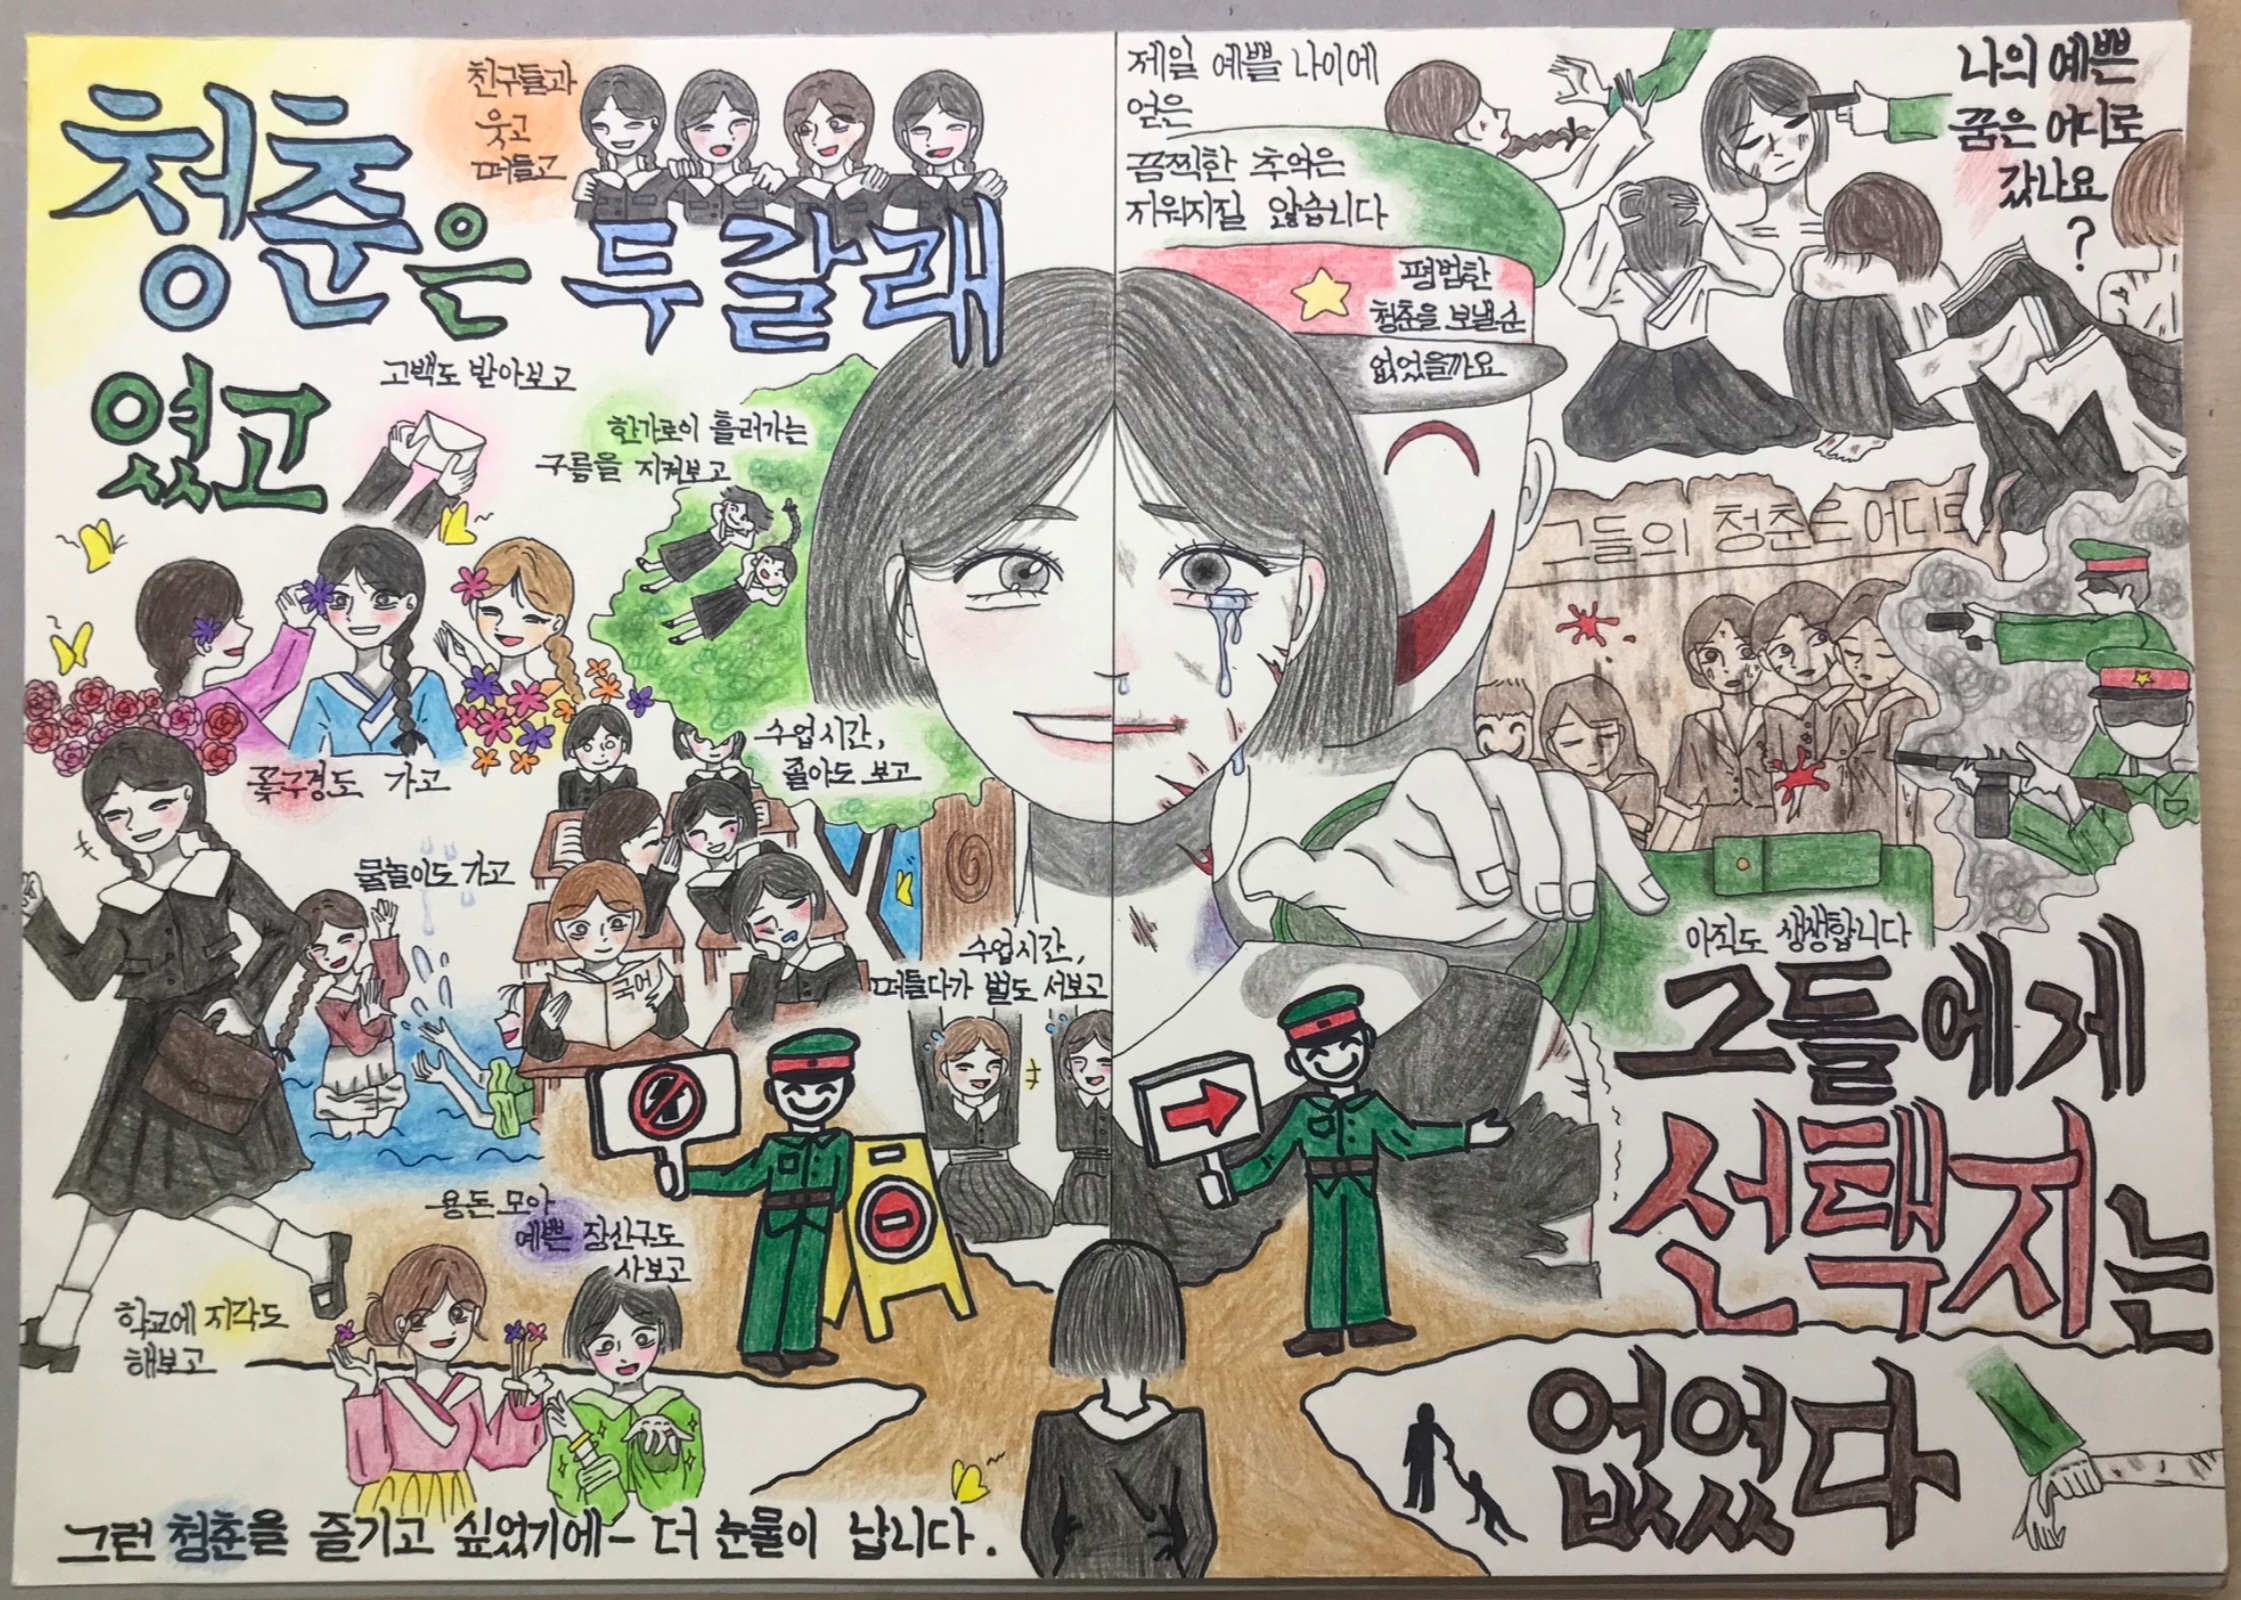 청춘은 두갈래
였고
친구들과
웃고
떠들고
고백도 받아보고
한가로이 흘러가는
구름을 지켜보고
꽃구경도 가고
수업시간,
졸아도 보고
물놀이도 가고
국어
수업시간,
떠들다가 벌도 서보고
용돈 모아
예쁜 장신구도
사보고
학교에 지각도
해보고
그런 청춘을 즐기고 싶었기에- 더 눈물이 납니다.
제일 예쁠 나이에
얻은
끔찍한 추억은
지워지질 않습니다
나의 예쁜
꿈은 어디로
갔나요
?
평범한
청춘을 보낼순
없었을까요
그들의 청춘은 어디로
아직도 생생합니다
그들에게
선택지는
없었다